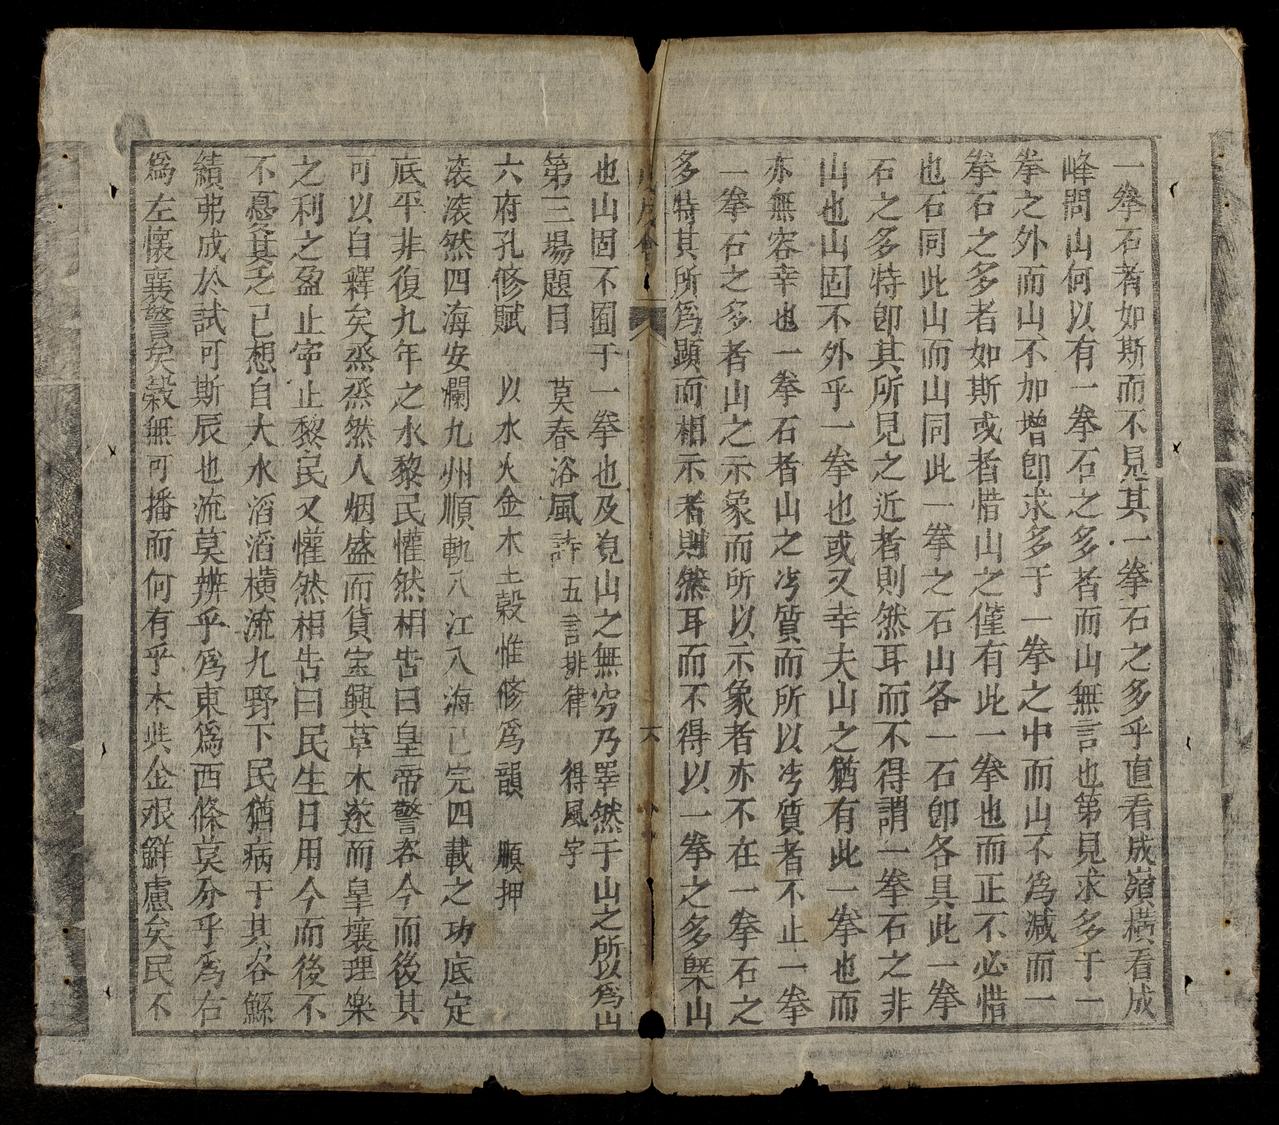 一拳石者如斯而不見其一拳石之多乎直看成嶺橫看成
峰問山何以有一拳石之多者而山無言也第見求多于一
拳之外而山不加增卽求多于一拳之中而山不爲減而一
拳石之多者如斯或者惜山之僅有此一拳也而正不必惜
也石同此山而山同此一拳之石山各一石卽各具此一拳
石之多特卽其所見之近者則然耳而不得謂一拳石之非
山也山固不外乎一拳也或又幸夫山之猶有此一拳也而
亦無容幸也一拳石者山之專質而所以專質者不止一拳
一拳石之多者山之示象而所以示象者亦不在一拳石之
多特其所爲顯而相示者則然耳而不得以一拳之多槩山
會
六
也山固不囿于一拳也及覓山之無穷乃睪然于山之所以爲山
第三場題目 莫春浴風詩 五言排律 得風字
六府孔修賦 以水火金木土穀惟修爲韻 順押
滚滚然四海安瀾九州順軌八江入海已完四載之功底定
底平非復九年之水黎民懽然相告曰皇帝警容今而後其
可以自釋矣烝烝然人烟盛而貨宝興草木遂而皇壤理樂
之利之盈止寕止黎民又懽然相告曰民生日用今而後不
不憂其乏已想自大水滔滔橫流九野下民猶病于其容鯀
績弗成於試可斯辰也流莫辨乎爲東爲西條莫分乎爲右
爲左懷襄警矣穀無可播而何有乎木與金艰鲜慮矣民不